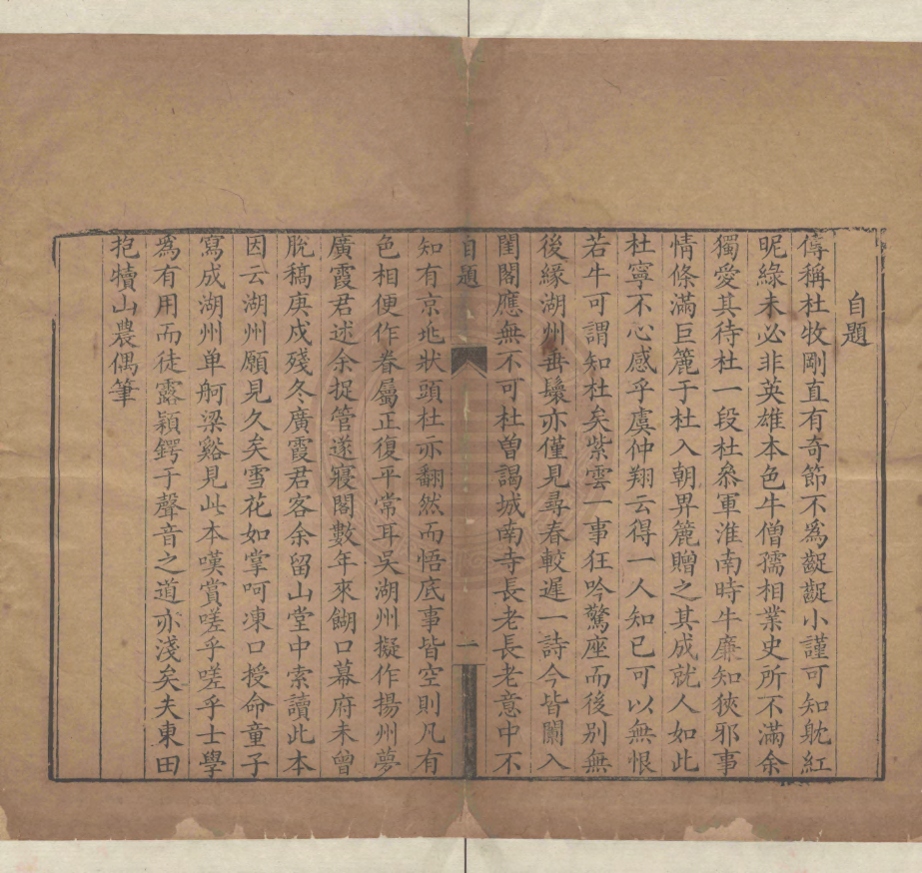 自題
傳稱杜牧剛直有奇節不爲齪齪小謹可知躭紅
昵綠未必非英雄本色牛僧孺相業史所不滿余
獨愛其待杜一段杜叅軍淮南時牛廉知狹邪事
情條滿巨簏于杜入朝畀簏贈之其成就人如此
杜寧不心感乎虞仲翔云得一人知已可以無恨
若牛可謂知杜矣紫雲一事狂吟驚座而後别無
後緣湖州垂鬟亦僅見尋春較遲一詩今皆闌入
閨閣應無不可杜曾謁城南寺長老長老意中不
自題
一
知有京兆狀頭杜亦翻然而悟底事皆空則凡有
色相便作眷屬正復平常耳吳湖州擬作揚州夢
廣霞君述余捉管遂寢閣數年來餬口幕府未曾
脫稿庚戌殘冬廣霞君客余留山堂中索讀此本
因云湖州願見久矣雪花如掌呵凍口授命童子
寫成湖州单舸梁谿見此本嘆賞嗟乎嗟乎士學
爲有用而徒露穎鍔于聲音之道亦淺矣夫東田
抱犢山農偶筆